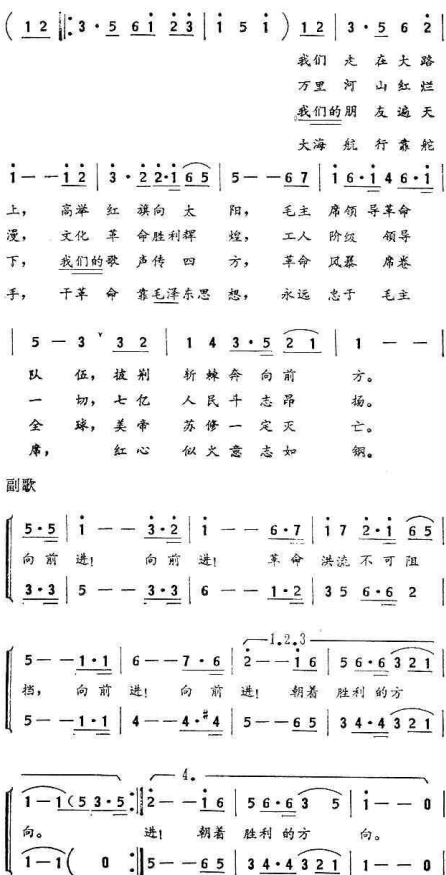 ( 1 2 ‖: 3 · 5 6 1 2 3 | 1 5 1 ) 1 2 | 3 · 5 6 2 |
我们 走 在 大 路
万里 河 山 红 烂
我们的 朋 友 遍 天
大海 航 行 靠 舵
1 - - 1 2 | 3 · 2 2·1 6 5 | 5 - - 6 7 | 1 6·1 4 6·1 |
上， 高举 红 旗向 太 阳， 毛主 席领 导革命
漫， 文化 革 命胜利辉 煌， 工人 阶级 领导
下， 我们的歌 声传 四 方， 革命 风暴 席卷
手， 干革 命 靠毛泽东思 想， 永远 忠于 毛主
| 5 - 3 ˅ 3 2 | 1 4 3·5 2 1 | 1 - - |
队 伍， 披荆 斩棘奔 向前 方。
一 切， 七亿 人民斗 志昂 扬。
全 球， 美帝 苏修一 定灭 亡。
席， 红心 似火意 志如 钢。
副歌
5·5 | 1 - - 3·2 | 1 - - 6·7 | 1 7 2·1 6 5 |
向前 进! 向前 进! 革命 洪流 不可阻
3·3 | 5 - - 3·3 | 6 - - 1·2 | 3 5 6·6 2 |
1.2.3
5 - - 1·1 | 6 - - 7·6 | 2 - - 1 6 | 5 6·6 3 2 1 |
挡， 向前 进! 向前 进! 朝着 胜利 的方
5 - - 1·1 | 4 - - 4·#4 | 5 - - 6 5 | 3 4·4 3 2 1 |
4.
1 - 1 ( 5 3·5 :‖ 2 - - 1 6 | 5 6·6 3 5 | 1 - - 0 |
向。 进! 朝着 胜利 的方 向。
1 - 1 ( 0 :‖ 5 - - 6 5 | 3 4·4 3 2 1 | 1 - - 0 |